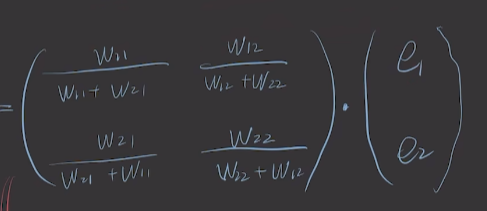 = ( w11 / (w11 + w21)   w12 / (w12 + w22) ) · ( e1 )
( w21 / (w21 + w11)   w22 / (w22 + w12) )   ( e2 )